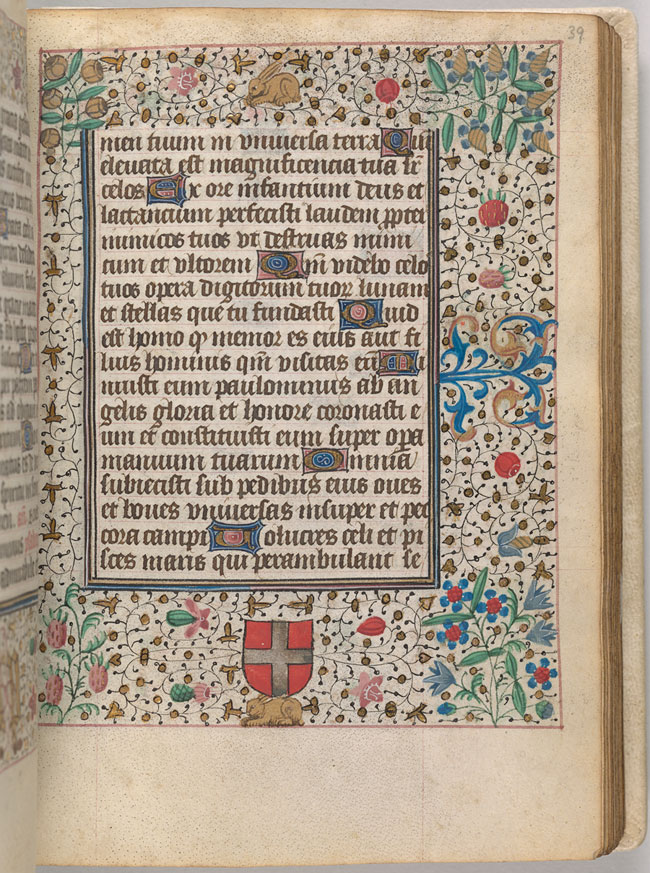 39
men tuum in vniuersa terra Qm
eleuata est magnificencia tua sr̄
celos Ex ore infantium deus et
lactancium perfecisti laudem ꝓpter
inimicos tuos vt destruas inimi
cum et vltorem Qm̄ videbo celo
tuos opera digitorum tuorꝝ lunam
et stellas que tu fundasti Quid
est homo ꝙ memor es eius aut fi
lius hominus qm̄ visitas eū Mi
nuisti eum paulominus ab an
gelis gloria et honore coronasti e
um et constituisti eum super opa
manuum tuarum Omnia
subiecisti sub pedibus eius oues
et boues vniuersas insuper et pec
cora campi Uolucres celi et pi
sces maris qui perambulant se